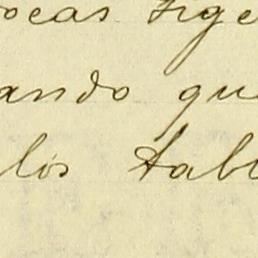 ocas lige
ando que
los tabl